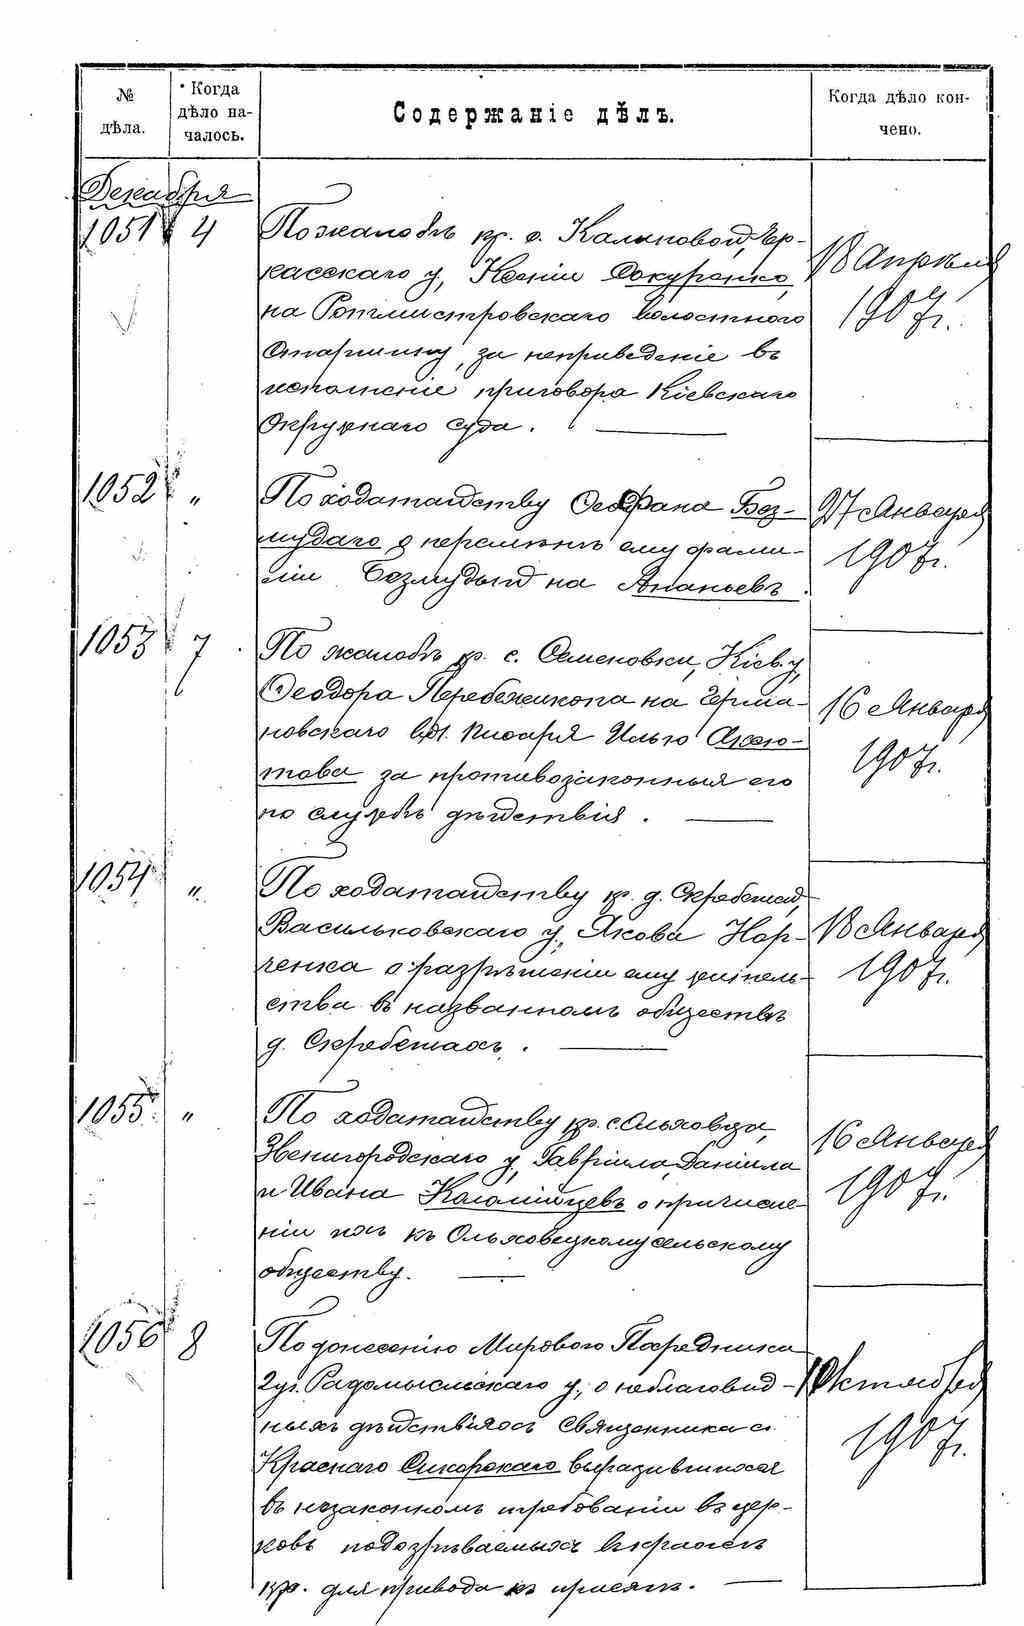 № дѣла.
Когда дѣло на-
чалось.
Содержаніе дѣлъ.
Когда дѣло кон-
чено.
Декабря
1051 4 По жалобѣ кр. с. Калиновой, Чер-
касскаго у., Ксеніи Сокуренко,
на Ротмистровскаго Волостного
Старшину, за неприведеніе въ
исполненіе приговора Кіевскаго
Окружнаго суда.
18 Апрѣля
1907 г.
1052 " По ходатайству Феофана Без-
мудаго о перемѣнѣ ему фами-
ліи Безмудый на Ананьевъ.
27 Января
1907 г.
1053 7 По жалобѣ кр. с. Семеновки, Кіев. у.,
Феодора на Герма-
новскаго Вол. Писаря Илью Аксю-
това за противозаконныя его
по службѣ дѣйствія.
16 Января
1907 г.
1054 " По ходатайству кр. д. Скребешей,
Васильковскаго у., Якова Нор-
ченка о разрѣшеніи ему житель-
ства въ названномъ обществѣ
д. Скребешахъ.
18 Января
1907 г.
1055 " По ходатайству кр. с. Ольховца,
Звенигородскаго у., Гавріила, Даніила
и Ивана Коломійцевъ о причисле-
ніи ихъ къ Ольховецкому сельскому
обществу.
16 Января
1907 г.
1056 8 По донесенію Мирового Посредника
2 уч. Радомысльскаго у., о неблаговид-
ныхъ дѣйствіяхъ Священника с.
Краснаго Сикорскаго выразившихся
въ незаконномъ требованіи въ цер-
ковь подозрѣваемыхъ въ кражѣ
кр. для привода къ присягѣ.
1 Октября
1907 г.